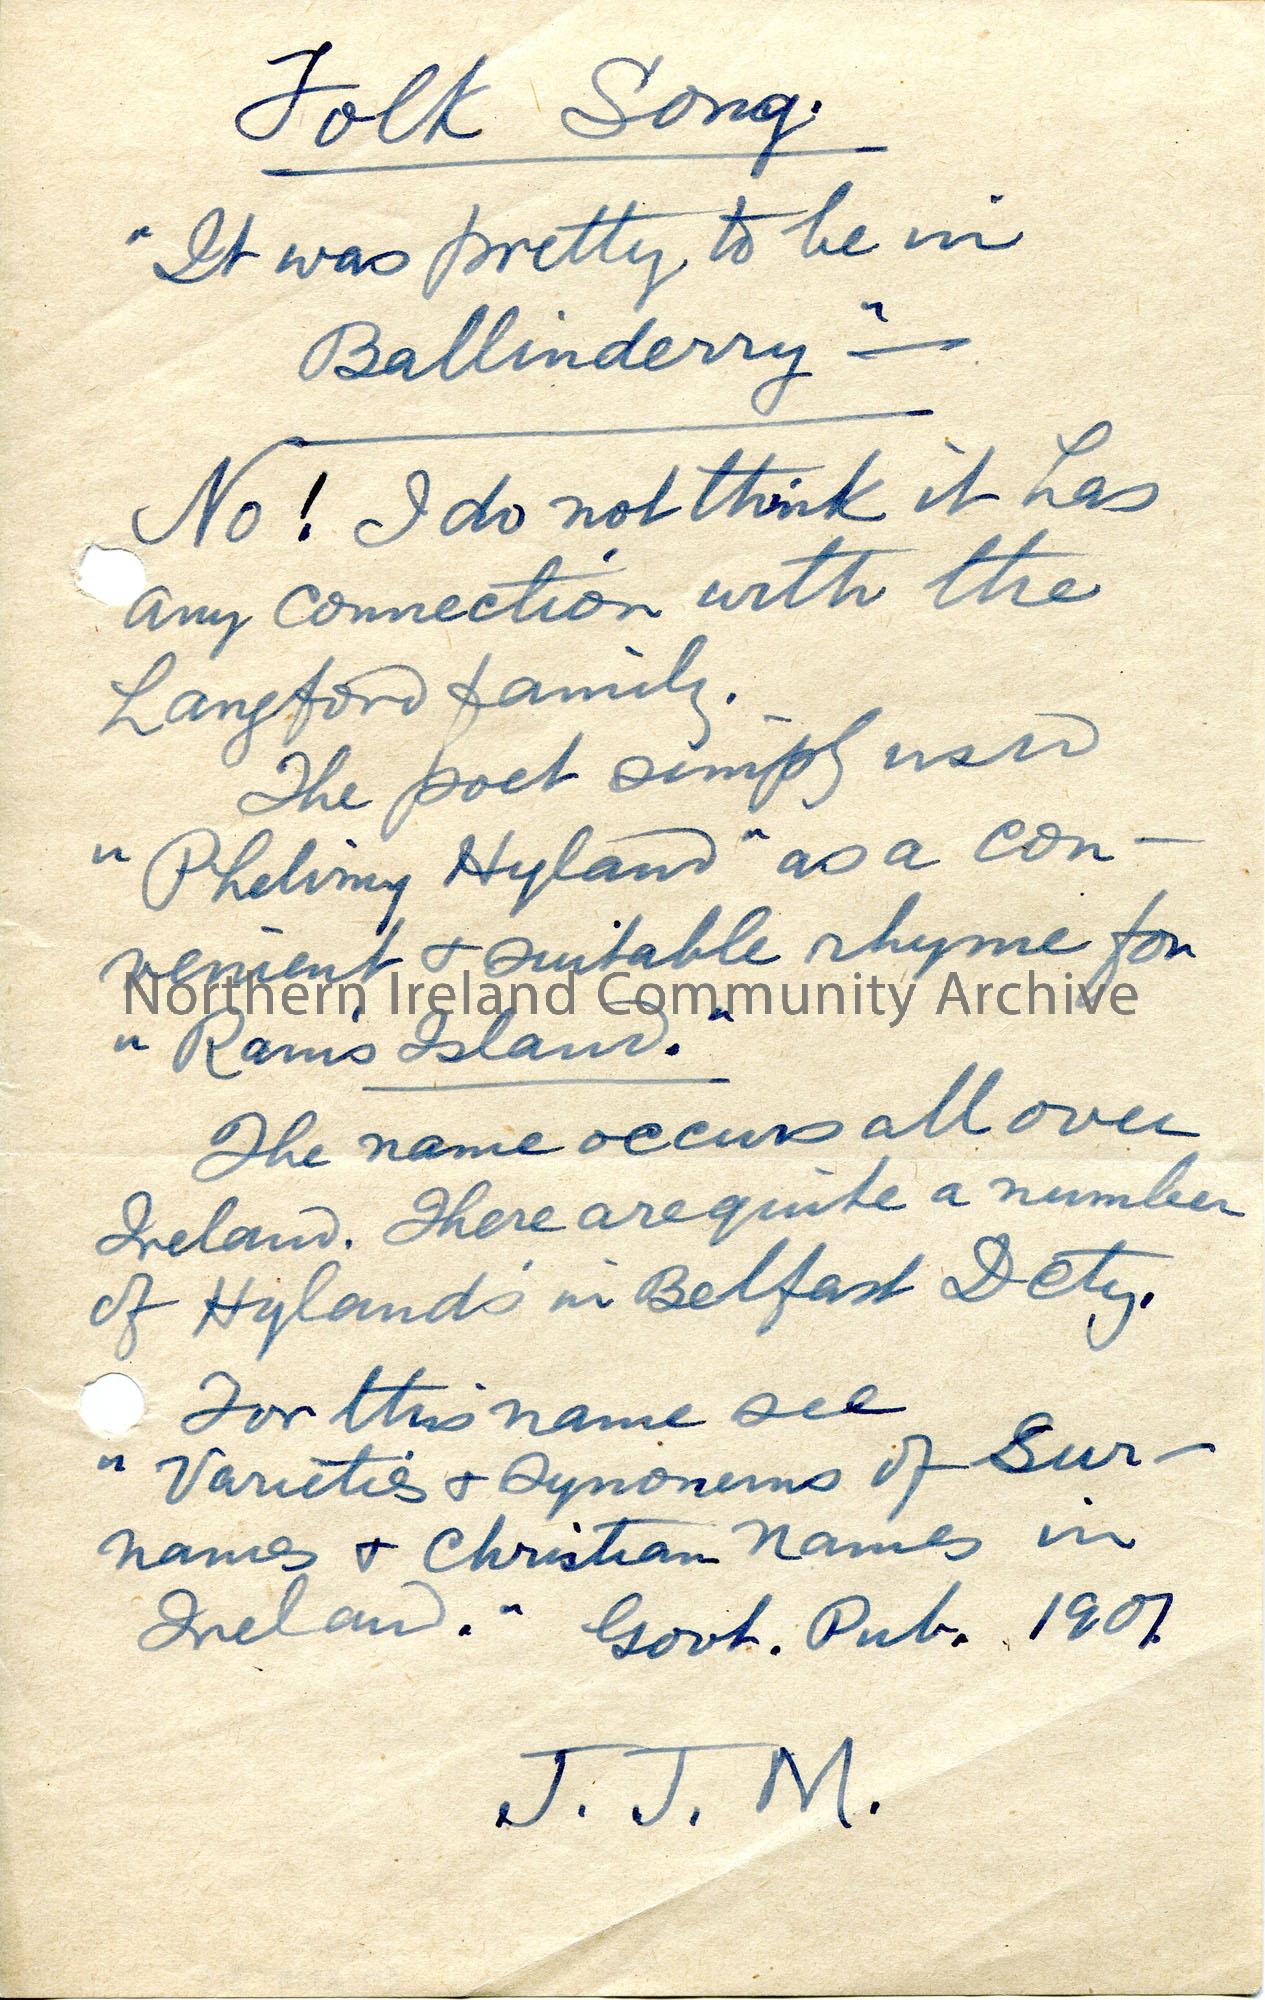 Folk Song.
"It was pretty to be in
Ballinderry" —
No! I do not think it has
any connection with the
Langford family.
The poet simply used
"Phelimy Hyland" as a con-
venient & suitable rhyme for
Northern Ireland Community Archive
"Ram's Island."
The name occurs all over
Ireland. There are quite a number
of Hyland's in Belfast Dcty.
For this name see
"Varieties & Synonems of Sur-
names & Christian Names in
Ireland." Govt. Pub. 1907
J. J. M.